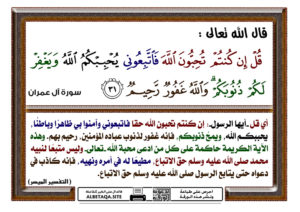 قال الله تعالى :
قُلْ إِن كُنتُمْ تُحِبُّونَ اللَّهَ فَاتَّبِعُونِي يُحْبِبْكُمُ اللَّهُ وَيَغْفِرْ
لَكُمْ ذُنُوبَكُمْ ۗ وَاللَّهُ غَفُورٌ رَّحِيمٌ ٣١ سورة آل عمران
أي قل -أيها الرسول-: إن كنتم تحبون الله حقا فاتبعوني وآمنوا بي ظاهرًا وباطنًا،
يحببكم الله، ويمحُ ذنوبكم، فإنه غفور لذنوب عباده المؤمنين، رحيم بهم. وهذه
الآية الكريمة حاكمة على كل من ادعى محبة الله -تعالى- وليس متبعا لنبيه
محمد صلى الله عليه وسلم حق الاتباع، مطيعًا له في أمره ونهيه، فإنه كاذب في
دعواه حتى يتابع الرسول صلى الله عليه وسلم حق الاتباع.
( التفسير الميسر )
ALBETAQA.SITE
احرص على طباعة
ونشر هذه الورقة